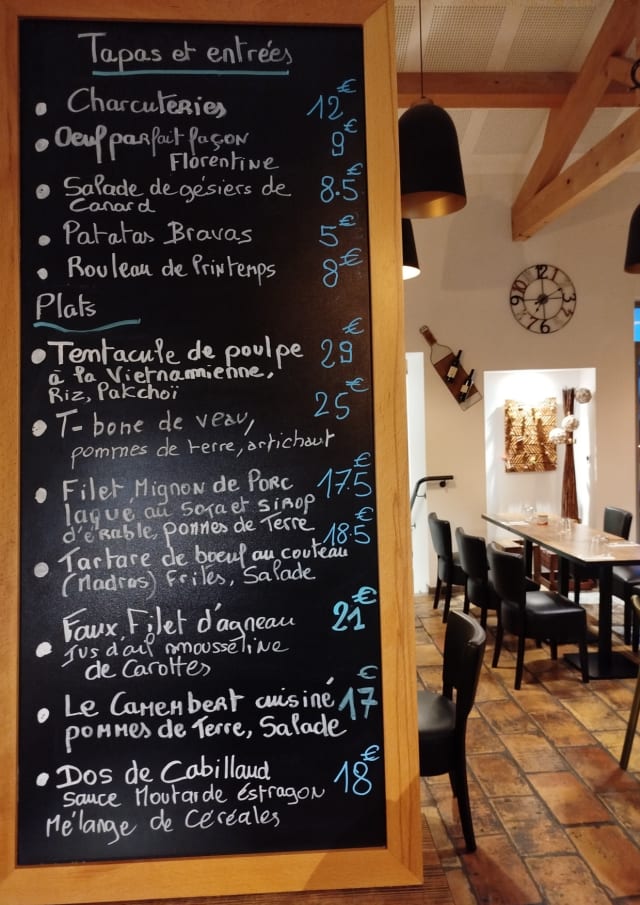 Tapas et entrées
• Charcuteries 12€
• Oeuf parfait façon 9€
Florentine
• Salade de gésiers de 8.5€
Canard
• Patatas Bravas 5€
• Rouleau de Printemps 8€
Plats
• Tentacule de poulpe 29€
à la Vietnamienne,
Riz, Pakchoï
• T-bone de veau, 25€
pommes de terre, artichaut
• Filet Mignon de Porc 17.5€
laqué au soja et sirop
d'érable, pommes de Terre
• Tartare de boeuf au couteau 18.5€
(Madras) Frites, Salade
• Faux Filet d'agneau 21€
Jus d'ail mousseline
de Carottes
• Le Camembert cuisiné 17€
pommes de Terre, Salade
• Dos de Cabillaud 18€
Sauce Moutarde Éstragon
Mélange de Céréales